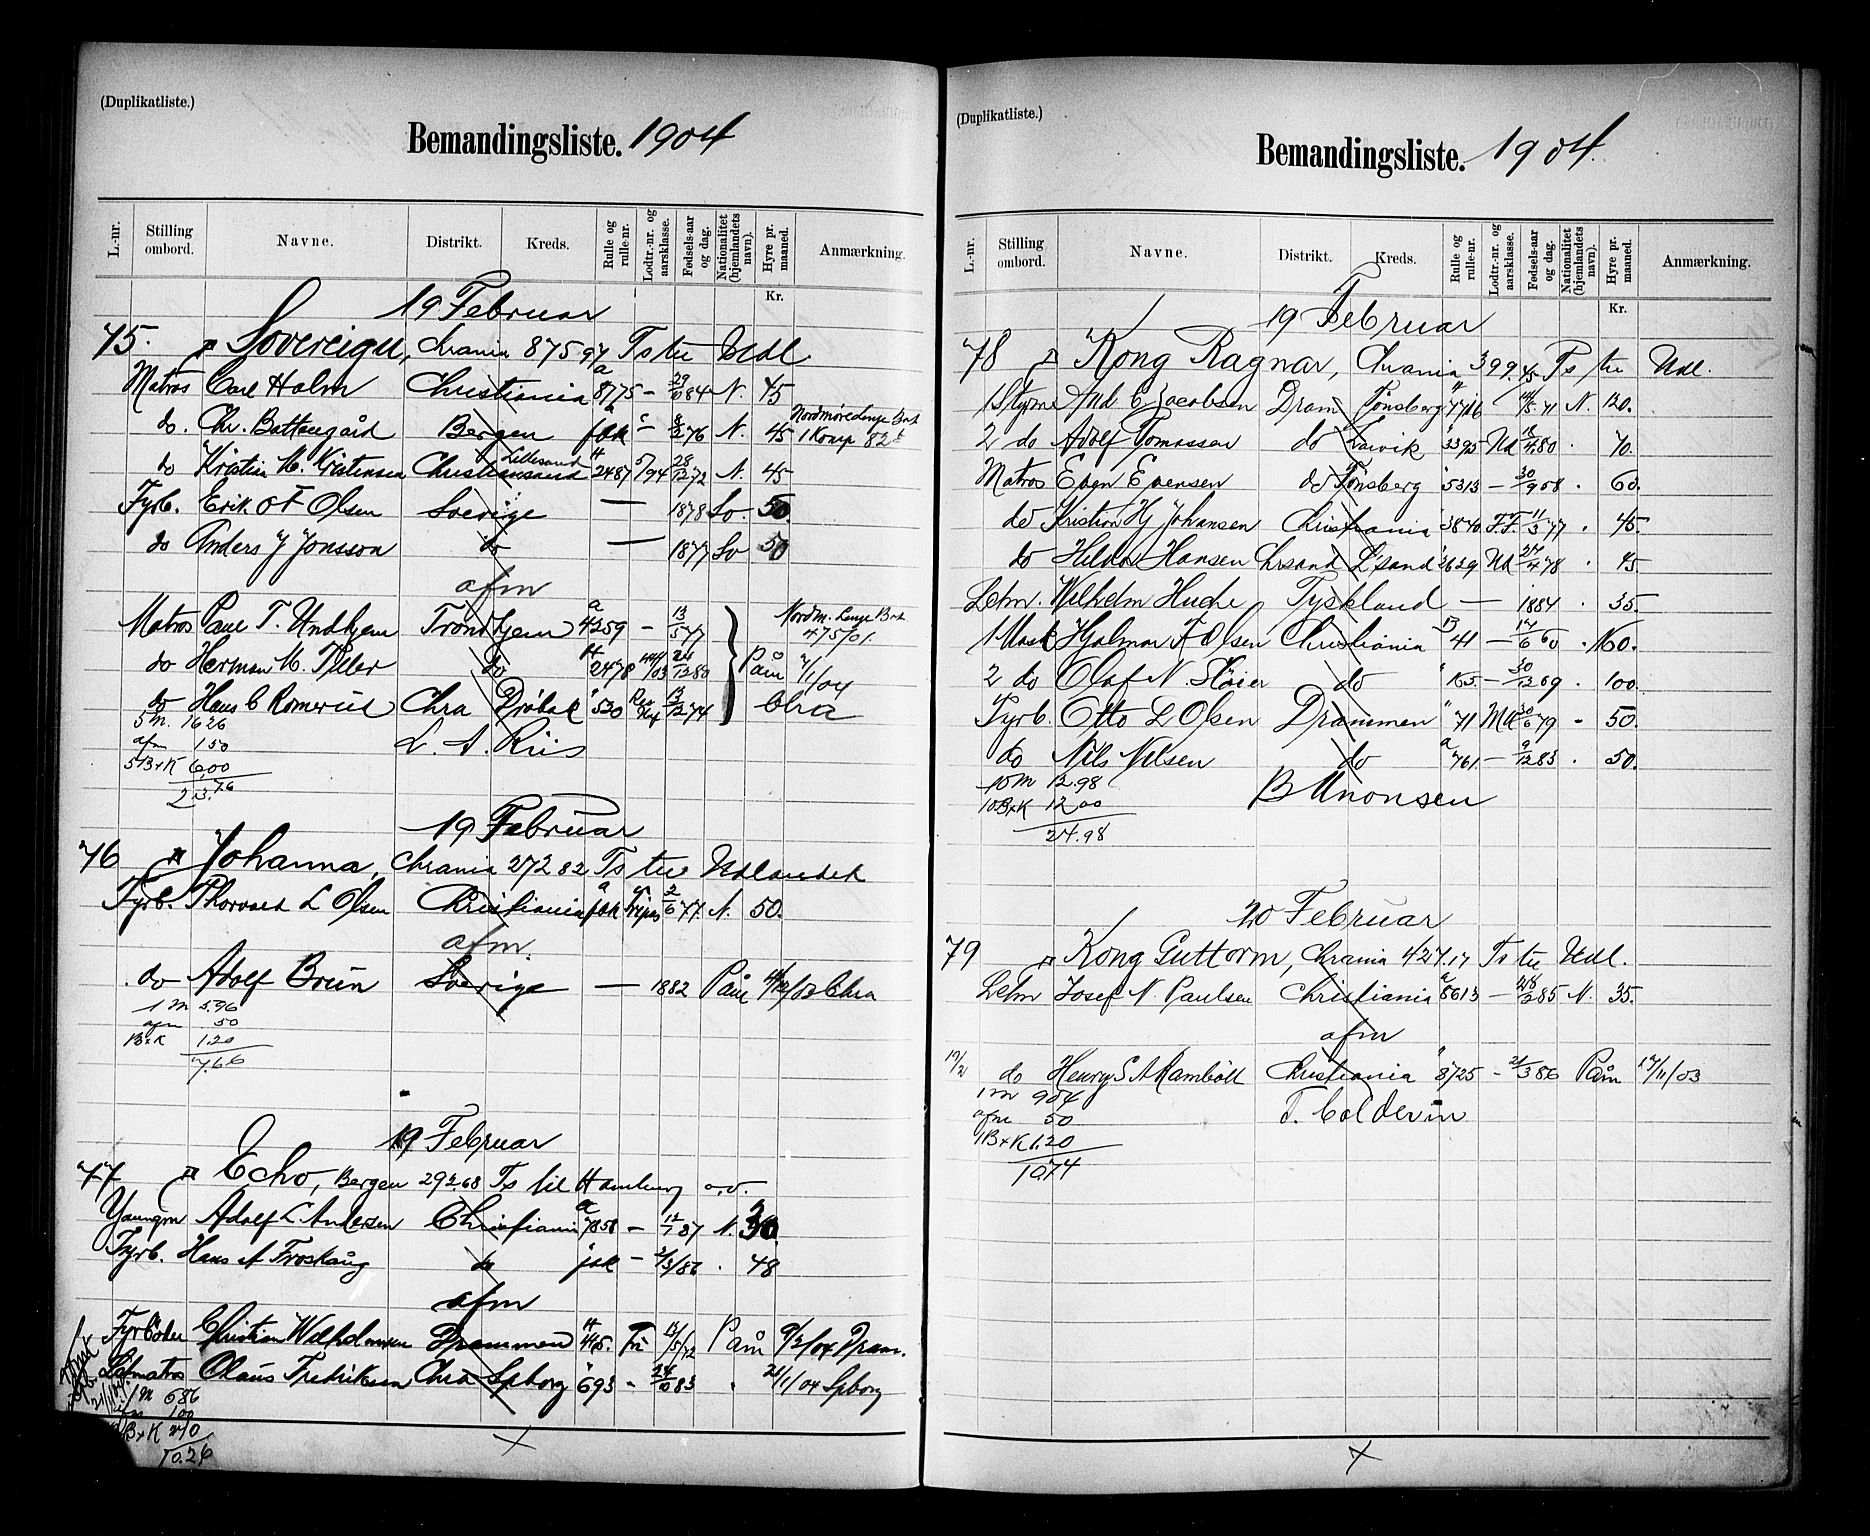 (Duplikatliste.)
Bemandingsliste. 1904
L.-nr. Stilling ombord. Navne. Distrikt. Kreds. Rulle og rulle-nr. Lodtr.-nr. og aarsklasse. Fødsels-aar og dag. Nationalitet (hjemlandets navn). Hyre pr. maaned. Anmærkning.
Kr.
19 Februar
75. Sovereign, Chrania 875 97 Ts til Udl
Matros Carl Holm Christiania a 8775 – 29/10 84 N. 45
do. Chr. Battengård Bergen fak – 76 N. 45
do Kristian M. Kristensen Christiansand Lillesand H 2487 5/94 28/12 72 N. 45
Fyrb. Erik O F Olsen Sverige — 1878 Sv. 50.
do Anders J Jonsson do — 1877 Sv 50
afm
Matros Paul T. Undhjem Trondhjem a 4259 – 13/5 77 Nordm. Linge Bat 475/01.
do Herman M. Tiller do H 2478 24/12 80 Påm /1/04
do Hans C Romerud Chra Drøbak " 530 13/12 74 Chra
5 M. 16 26
afm 1 50
5 B+K 6.00
23.76
L. A. Riis
19 Februar
76 Johanna, Chrania 272 82 Ts til Udlandet
Fyrb. Thorvald L Olsen Christiania a fak 2/6 77. N. 50.
afm.
do Adolf Brun Sverige — 1882 Påm Chra
1 M 5.96
afm 50
B+K 1.20
7.66
19 Februar
77 Echo, Bergen 292.68 Ts til Hamburg o.v.
Youngm Adolf L Andersen Christiania a 7858 – 12/7 87 N. 30.
Fyrb. Hans A Froskaug do fak – 2/3/86 . 48
afm
Fyrbøder Christian Wilhelmsen Drammen H 415. Fri 13/5/72 Påm 9/2/04 Dram.
Letmatros Olaus Fredriksen Chra Spborg " 693 - 24/10 83 . 21/1/04 Spborg
M 6 86
afm 1 00
B+K 2 40
10.26
(Duplikatliste.)
Bemandingsliste. 1904.
L.-nr. Stilling ombord. Navne. Distrikt. Kreds. Rulle og rulle-nr. Lodtr.-nr. og aarsklasse. Fødsels-aar og dag. Nationalitet (hjemlandets navn). Hyre pr. maaned. Anmærkning.
Kr.
19 Februar
78 Kong Ragnar, Chrania 399.45 Ts til Udl.
1 Styrm And. C Jacobsen Dram Tønsberg H 4716 71 N. 120.
2 do Adolf Tomassen do Larvik " 3395 Ud 80 . 70.
Matros Even Evensen do Tønsberg " 5313 – 30/9 58 . 60.
do Kristian Hj Johansen Christiania " 3840 F.F. 11/3 77 . 45.
do Hilda Hansen Chrsand L'sand " 2629 Ud 27/4 78 . 45
Letm. Wilhelm Huche Tyskland — 1884 . 35.
1 Mask Hjalmar F Olsen Christiania B 41 – 14/6 60 . 160.
2 do Olaf N. Skoien do " 165. – 30/12 69 . 100.
Fyrb. Otto L Olsen Drammen " 71 Ud 30/6 79 - 50.
do Nils Nilsen do a 761. – 9/12 83 . 50.
10 M 12.98
10 B+K 12 00
24.98
B Unonsen
20 Februar
79 Kong Guttorm, Chrania 427.17 Ts til Udl.
Letm Josef N. Paulsen Christiania a 8613 – 28/2 85 N. 35.
afm
17/2 do Henry S A Ramböll Christiania " 8725 – 21/3 86 Påm 17/11/03
1 M 9 04
afm 50
1 B+K 1.20
10.74
T. Coldevin